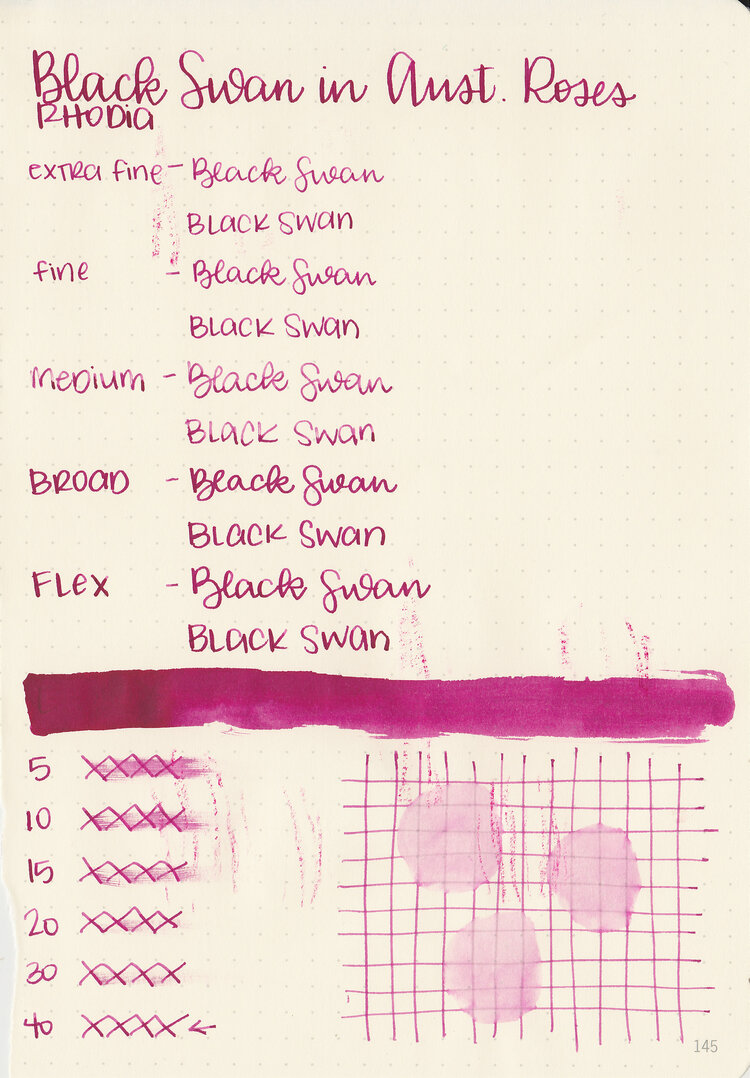 Black Swan in Aust. Roses
RHODia
extra fine - Black Swan
BLACK SWan
fine - Black Swan
BLACK SWan
Medium - Black Swan
BLACK SWan
BROAD - Black Swan
BLACK SWan
FLex - Black Swan
BLACK SWan
5 XXXX
10 XXXX
15 XXXX
20 XXXX
30 XXXX
40 XXXX ←
145